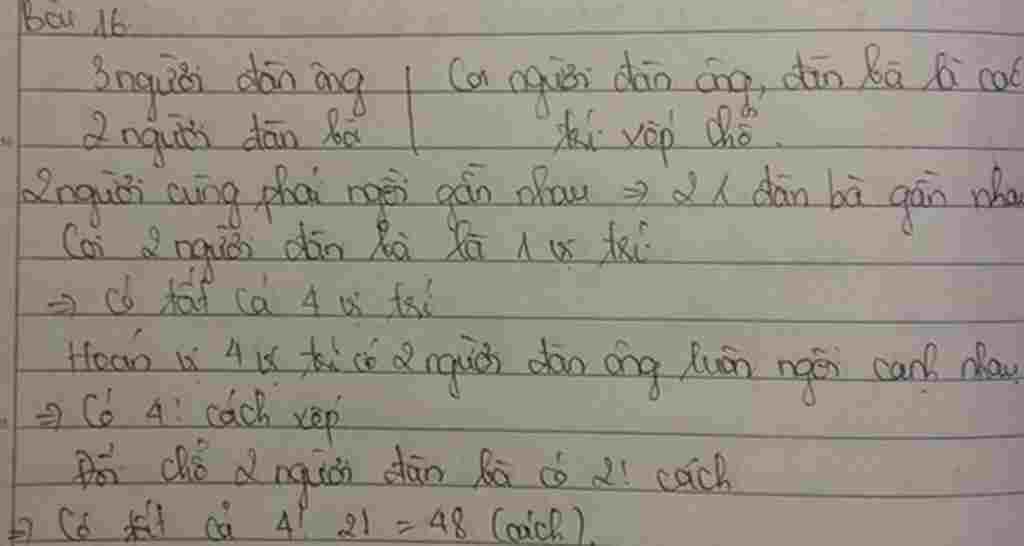 Bài 16
3 người đàn ông | Coi người đàn ông, đàn bà là các
2 người đàn bà | trí xếp chỗ.
2 người cùng phái ngồi gần nhau => 2 đàn bà gần nhau
Coi 2 người đàn bà là 1 vị trí
=> Có tất cả 4 vị trí
Hoán vị 4 vị trí có 2 người đàn ông luôn ngồi cạnh nhau
=> Có 4! cách xếp
Đổi chỗ 2 người đàn bà có 2! cách
=> Có tất cả 4! 2! = 48 (cách).